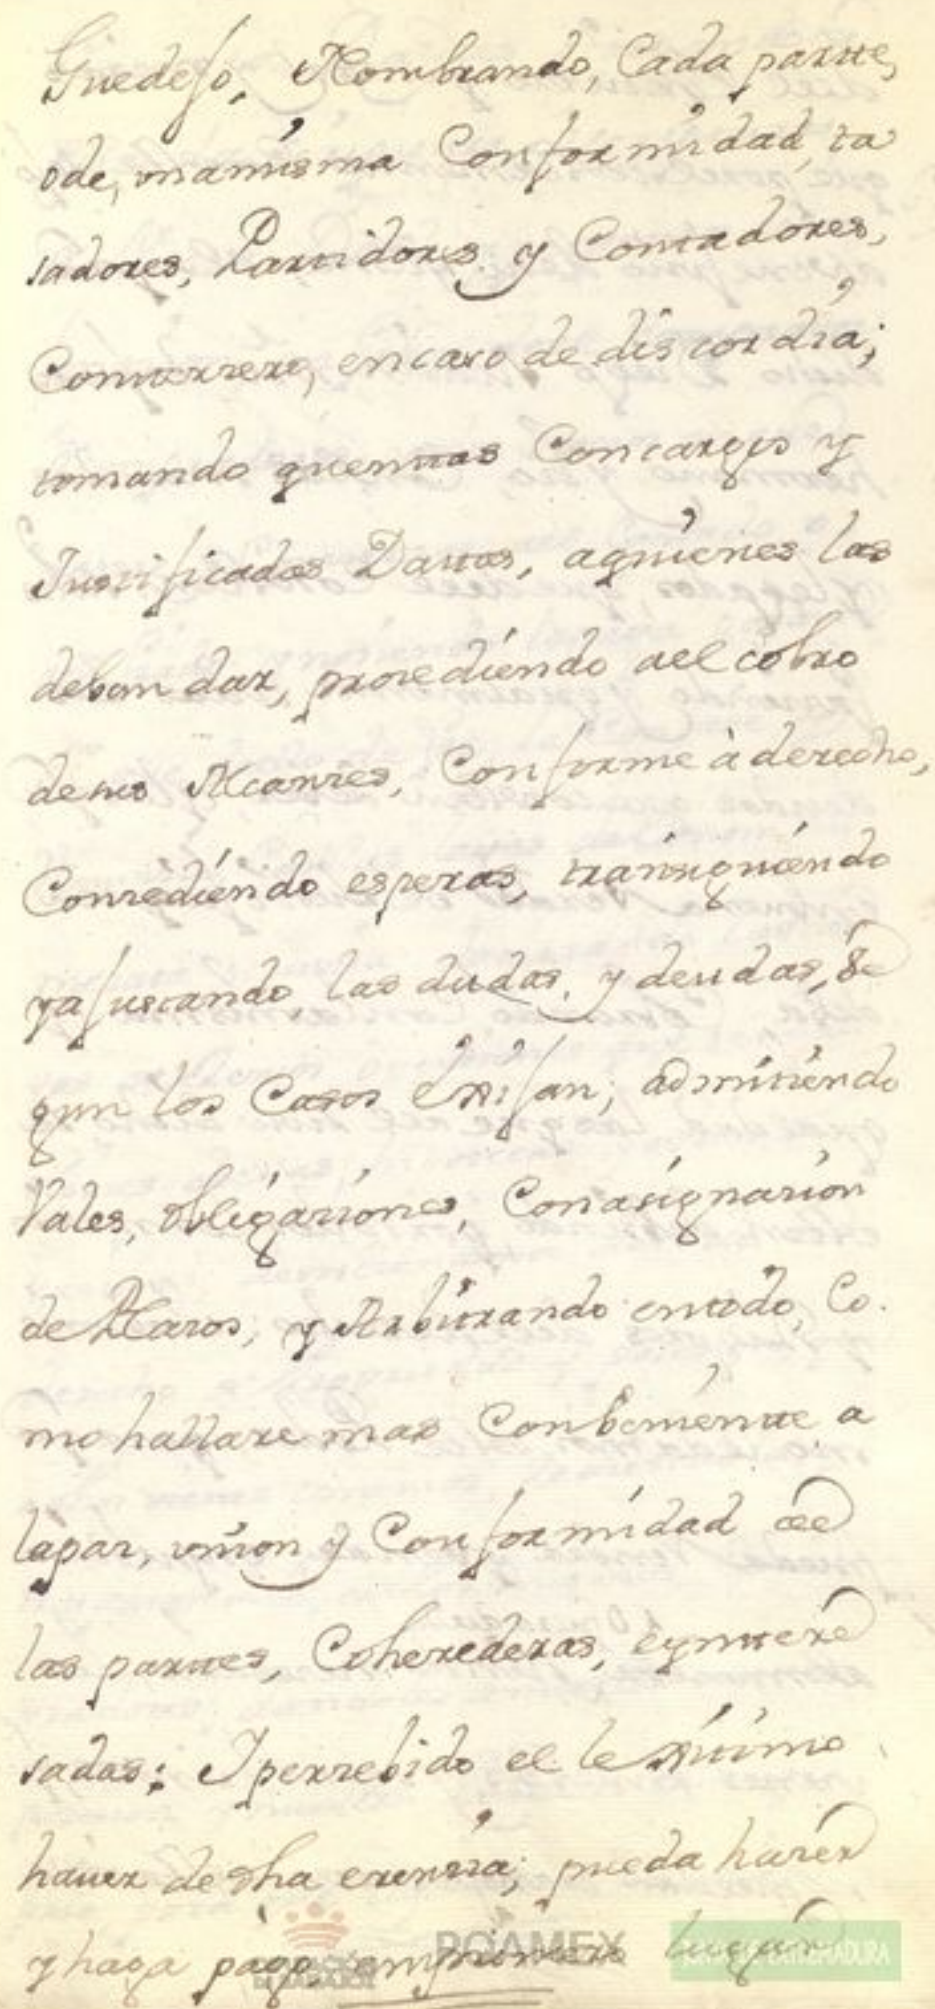 Guedejo, Nombrando, Cada partte,
ode, vna misma Conformidad, ta
sadores, Partidores, y Contadores,
Contterzero, en caso de discordia;
tomando quenttas Con cargos y
Justificadas Dattas, aquienes las
deban dar, prosediendo ael cobro
desus Alcanzes, Conforme à derecho,
Consediendo esperas, transiguiendo
yajustando, las dudas, y deudas, se
gun los Casos Exijan; admitiendo
Vales, obligasiones, Con asignasion
de Plazos, y Arbitrando entodo, Co.
mo hallare mas Conbenientte a
lapaz, vnion y Conformidad de
las parttes, Coherederas, eyntere
sadas: I perzebido el lexitimo
hauer de dha erenzia; pueda haser
yhaga pàgo, enprimero lugar
POAMEX